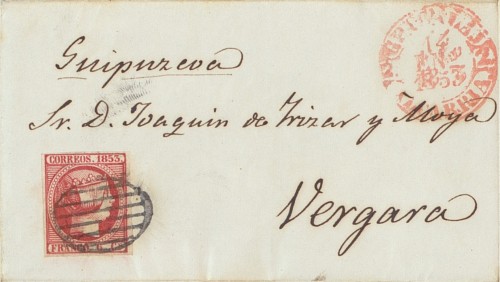 Guipuzcoa
Sr. D. Joaquin de Irizar y Moya
Vergara
CORREOS. 1853.
FRANCO
14
1853